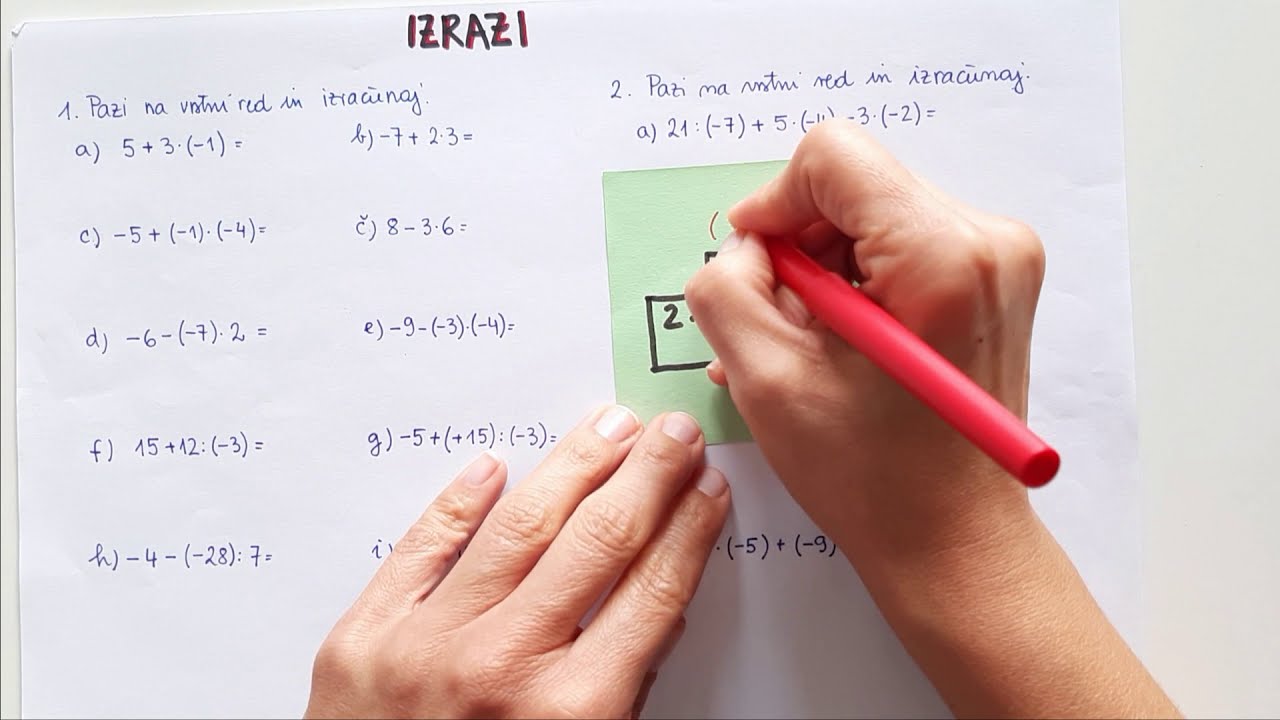 IZRAZI
1. Pazi na vrstni red in izračunaj.
a) 5 + 3·(-1) =
b) -7 + 2·3 =
c) -5 + (-1)·(-4) =
č) 8 - 3·6 =
d) -6 - (-7)·2 =
e) -9 - (-3)·(-4) =
f) 15 + 12:(-3) =
g) -5 + (+15):(-3) =
h) -4 - (-28):7 =
i)
2. Pazi na vrstni red in izračunaj.
a) 21:(-7) + 5·(-4) -3·(-2) =
(
2.
·(-5) + (-9)